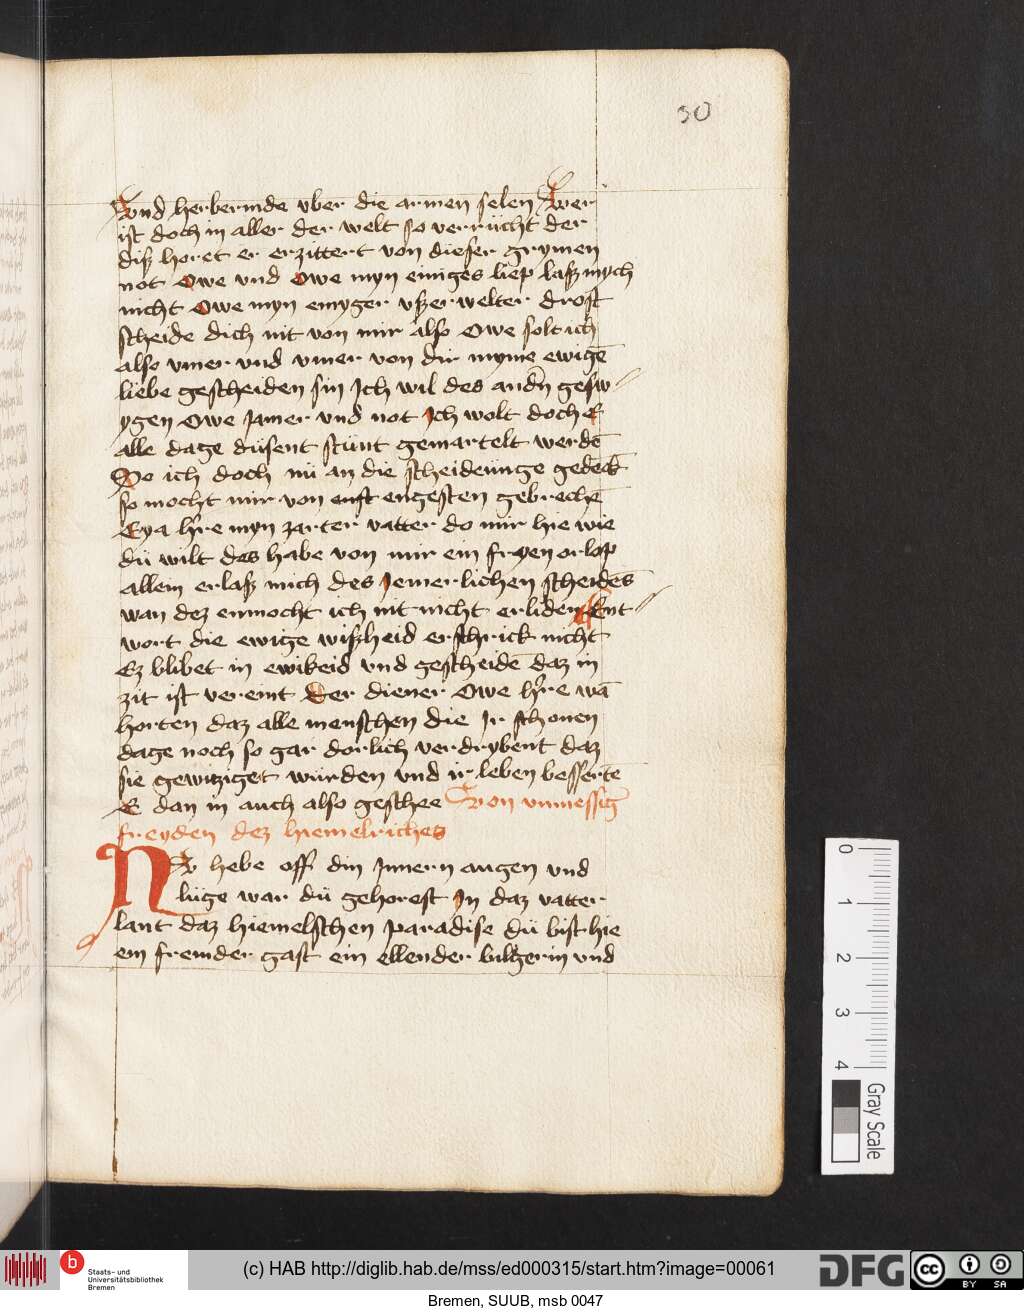 30
vnd herbermde vber die armen selen Wer
ist doch in aller der welt so verrücht der
disz horet er erzittert von dieser grymen
not Owe vnd Owe myn einiges liep lasz mych
nicht Owe myn emyger vszerwelter drost
scheide dich nit von mir also Owe solt ich
also vmer vnd vmer von dir myme ewigē
liebe gescheiden sin Ich wil des andn̄ gesw⸗
ygen Owe Jamer vnd not Ich wolt doch E
alle dage düsent stünt gemartelt werdē
So ich doch nü an die scheidünge gedēck
so mocht mir von engesten gebrechē
Eya h're myn zarter vatter do mir hie wie
dü wilt des habe von mir ein fryen orlop
allein erlasz mich des Jemerlichen scheidēs
wan dez enmocht ich nit nicht erliden Ent⸗
wort die ewige wiszheid erschrick nicht
Ez blibet in ewikeid vnd gescheidē daz in
zit ist vereint Der diener Owe h're wā
horten daz alle menschen die Ir schonen
dage noch so gar dorlich verdrybent daz
sie gewitziget würden vnd ir leben bessertē
E dan in auch also geschee Von vnmessig'
freyden dez hiemelriches
NV hebe off din Innern augen vnd
lüge war dü gehorest In daz vatter
lant daz hiemelschen paradise dü bist hie
ein fremder gast ein ellender bilgerin vnd
0
1
2
3
4
Gray Scale
b
Staats- und
Universitätsbibliothek
Bremen
(c) HAB http://diglib.hab.de/mss/ed000315/start.htm?image=00061
DFG
cc
BY SA
Bremen, SUUB, msb 0047